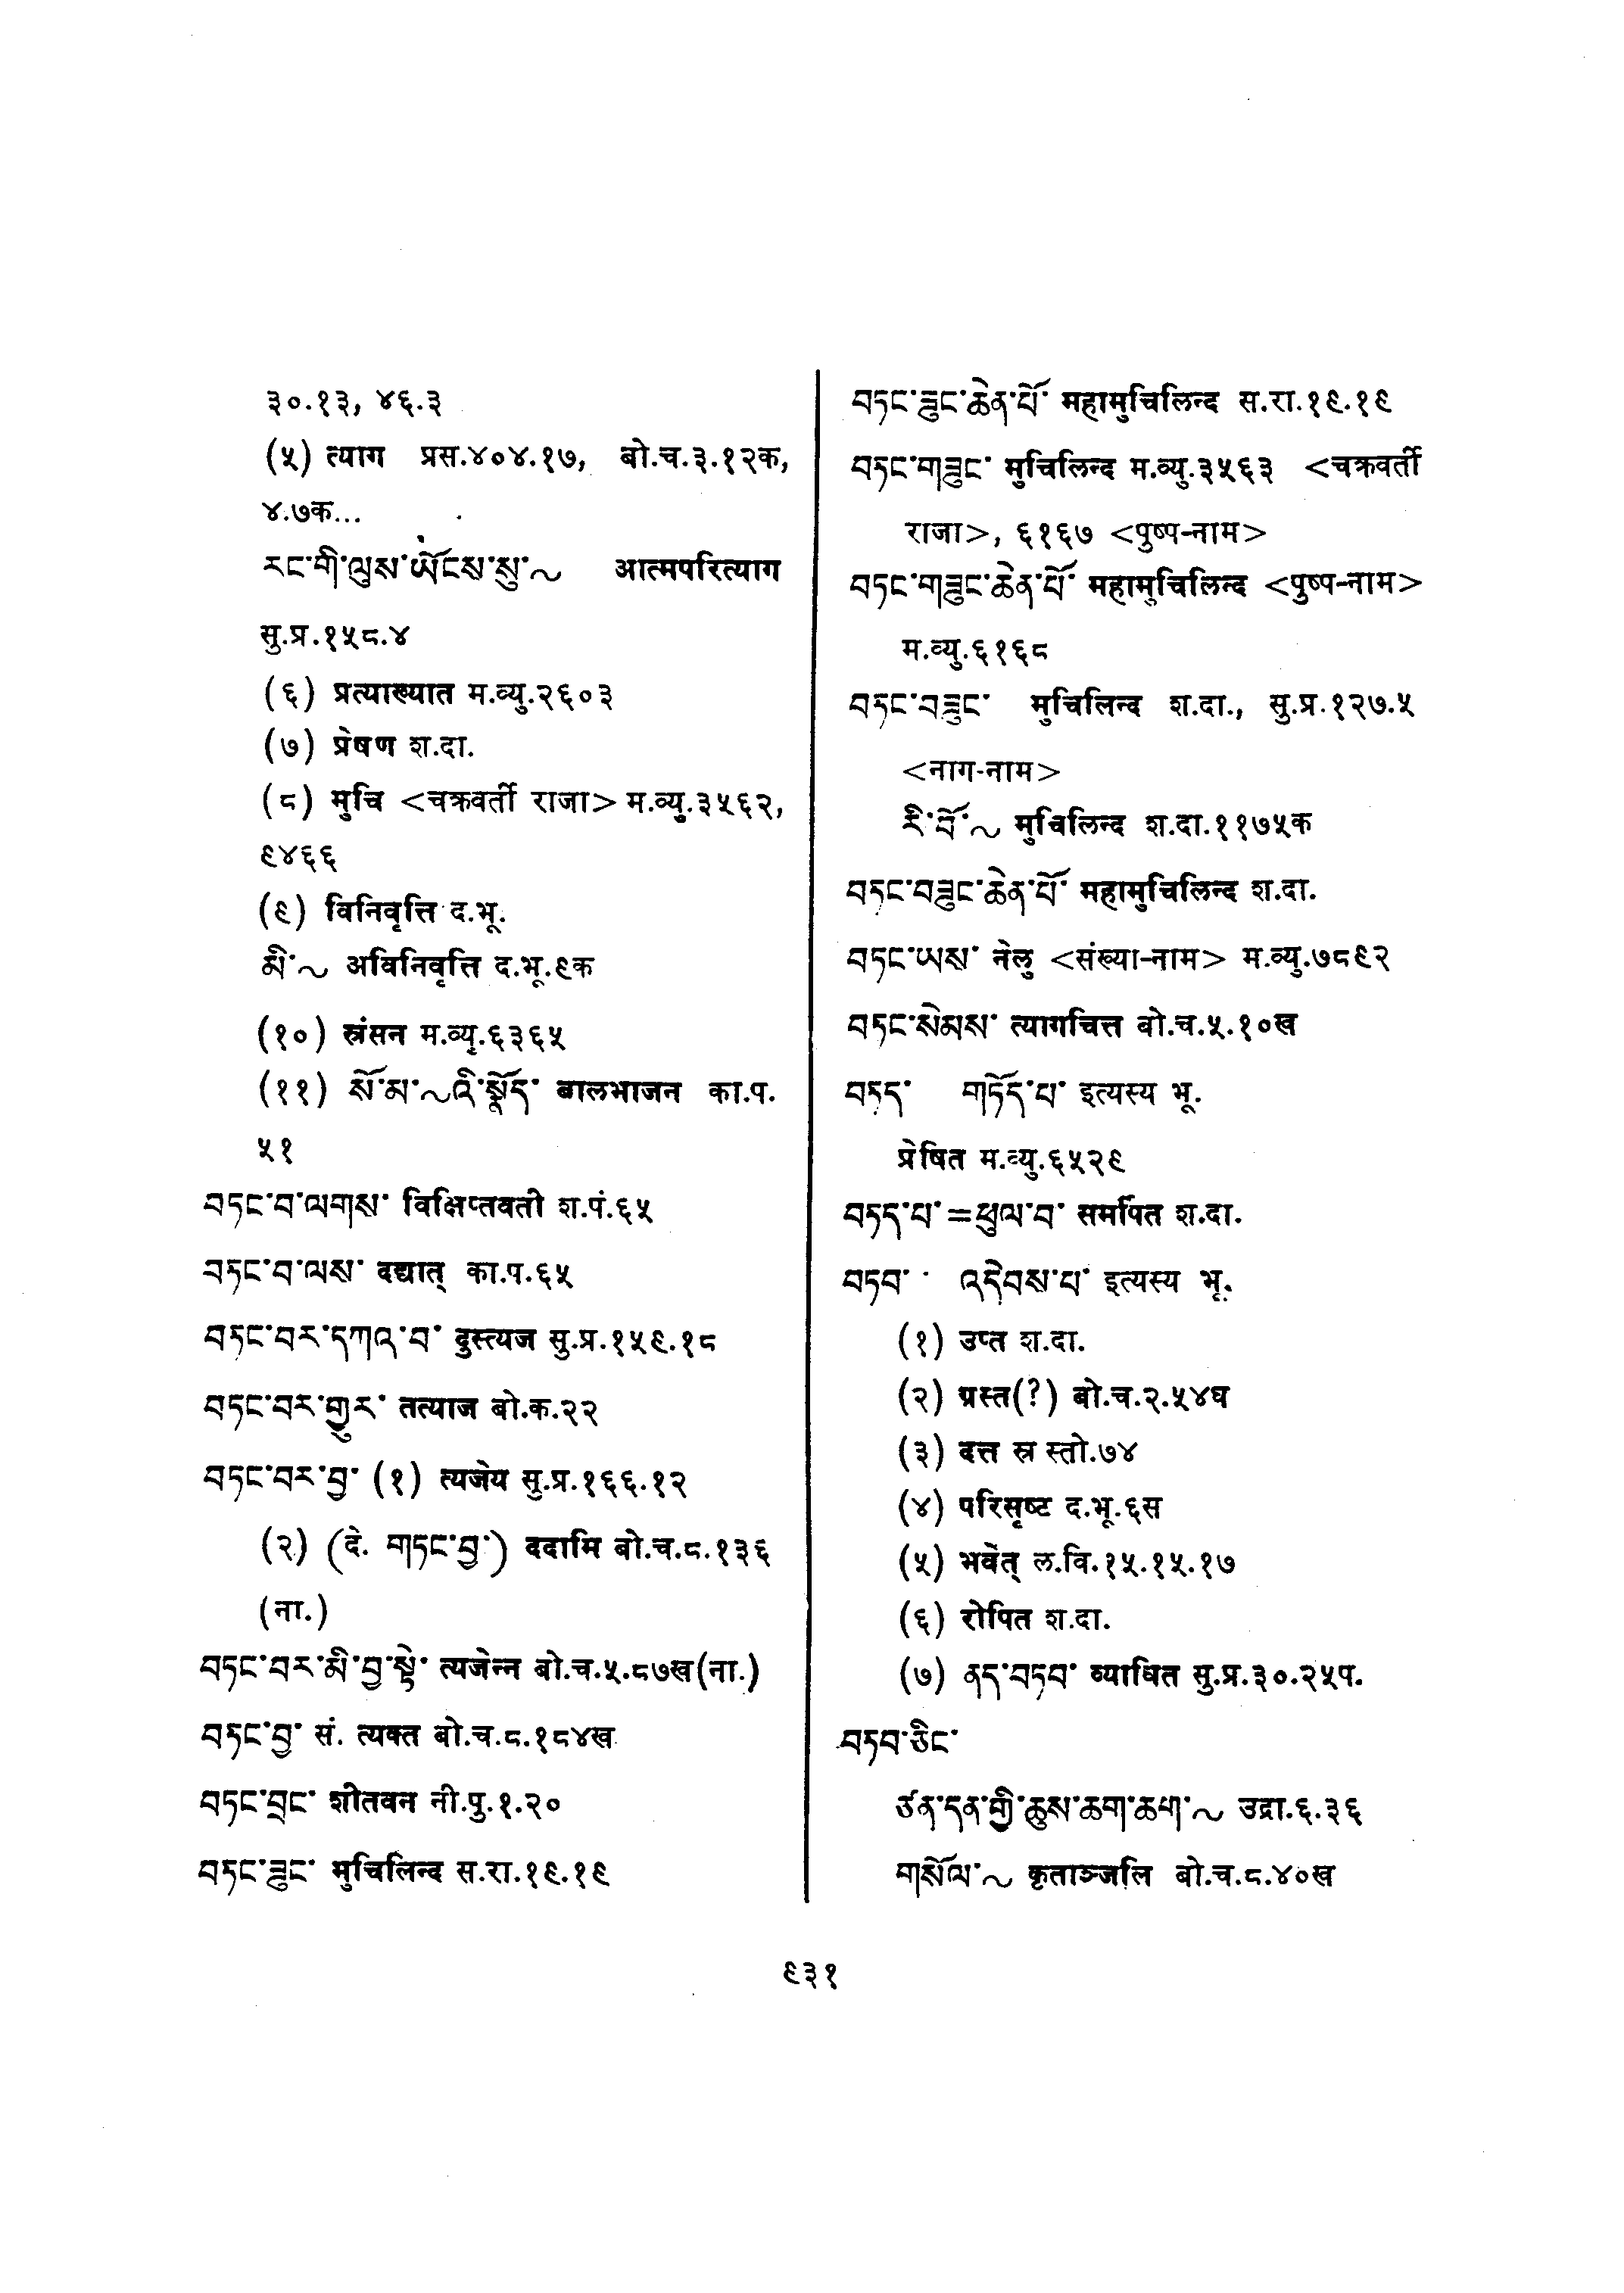 ३०.१३, ४६.३
(५) त्याग प्रस.४०४.१७, बो.च.३.१२क,
४.७क...
རང་གི་ལུས་ཡོངས་སུ་~ आत्मपरित्याग
सु.प्र.१५८.४
(६) प्रत्याख्यात म.व्यु.२६०३
(७) प्रेषण श.दा.
(८) मुचि <चक्रवर्ती राजा> म.व्यु.३५६२,
९४६६
(९) विनिवृत्ति द.भू.
མི་~ अविनिवृत्ति द.भू.९क
(१०) स्रंसन म.व्यु.६३६५
(११) སོ་མ་~འི་སྣོད་ बालभाजन का.प.
५१
བཏང་བ་ལགས་ विक्षिप्तवती श.पं.६५
བཏང་བ་ལས་ दद्यात् का.प.६५
བཏང་བར་དཀའ་བ་ दुस्त्यज सु.प्र.१५९.१८
བཏང་བར་གྱུར་ तत्याज बो.क.२२
བཏང་བར་བྱ་ (१) त्यजेय सु.प्र.१६६.१२
(२) (दे. གཏང་བྱ་) ददामि बो.च.८.१३६
(ना.)
བཏང་བར་མི་བྱ་སྟེ་ त्यजेन्न बो.च.५.८७ख(ना.)
བཏང་བྱ་ सं. त्यक्त बो.च.८.१८४ख
བཏང་བྲང་ शीतवन नी.पु.१.२०
བཏང་ཟུང་ मुचिलिन्द स.रा.१९.१९
བཏང་ཟུང་ཆེན་པོ་ महामुचिलिन्द स.रा.१९.१९
བཏང་གཟུང་ मुचिलिन्द म.व्यु.३५६३ <चक्रवर्ती
राजा>, ६१६७ <पुष्प-नाम>
བཏང་གཟུང་ཆེན་པོ་ महामुचिलिन्द <पुष्प-नाम>
म.व्यु.६१६८
བཏང་བཟུང་ मुचिलिन्द श.दा., सु.प्र.१२७.५
<नाग-नाम>
རི་བོ་~ मुचिलिन्द श.दा.११७५क
བཏང་བཟུང་ཆེན་པོ་ महामुचिलिन्द श.दा.
བཏང་ཡས་ नेलु <संख्या-नाम> म.व्यु.७८९२
བཏང་སེམས་ त्यागचित्त बो.च.५.१०ख
བཏད་ གཏོད་པ་ इत्यस्य भू.
प्रेषित म.व्यु.६५२९
བཏད་པ་=ཕུལ་བ་ समर्पित श.दा.
བཏབ་ འདེབས་པ་ इत्यस्य भू.
(१) उप्त श.दा.
(२) ग्रस्त(?) बो.च.२.५४घ
(३) दत्त स्र स्तो.७४
(४) परिसृष्ट द.भू.६स
(५) भवेत् ल.वि.१५.१५.१७
(६) रोपित श.दा.
(७) ནད་བཏབ་ व्याधित सु.प्र.३०.२५प.
བཏབ་ཅིང་
ཙན་དན་གྱི་ཆུས་ཆག་ཆག་~ उद्रा.६.३६
གསོལ་~ कृताञ्जलि बो.च.८.४०ख
९३१